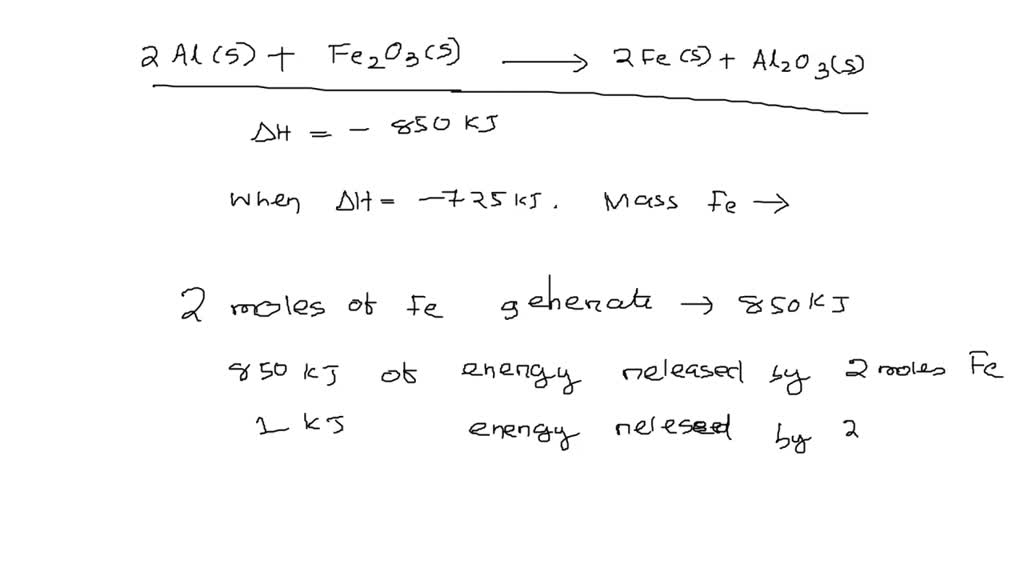 2Al(s) + Fe2O3(s) → 2Fe(s) + Al2O3(s)
ΔH = - 850 KJ
When ΔH = -725 KJ. Mass Fe →
2 moles of Fe generate → 850 KJ
850 KJ of energy released by 2 moles Fe
1 KJ energy relesed by 2